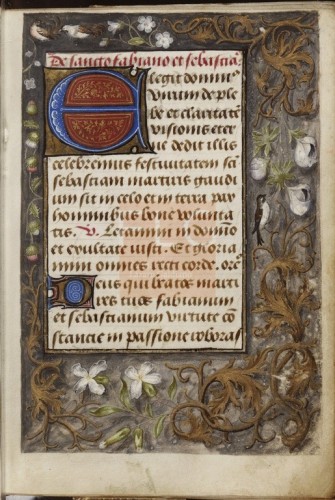 De sancto fabiano et sebastia.
Elegit dominus
virum de ple
be et claritate
visionis eter
ne dedit illis
celebremus festivitatem sci
sebastiani martiris gaudi
um sit in celo et in terra pax
hominibus bone volunta
tis. V. Letamini in domino
et exultate iusti. Et gloria
mini omnes recti corde. orō
Deus qui beatos marti
res tuos fabianum
et sebastianum virtute cō
stancie in passione roboras